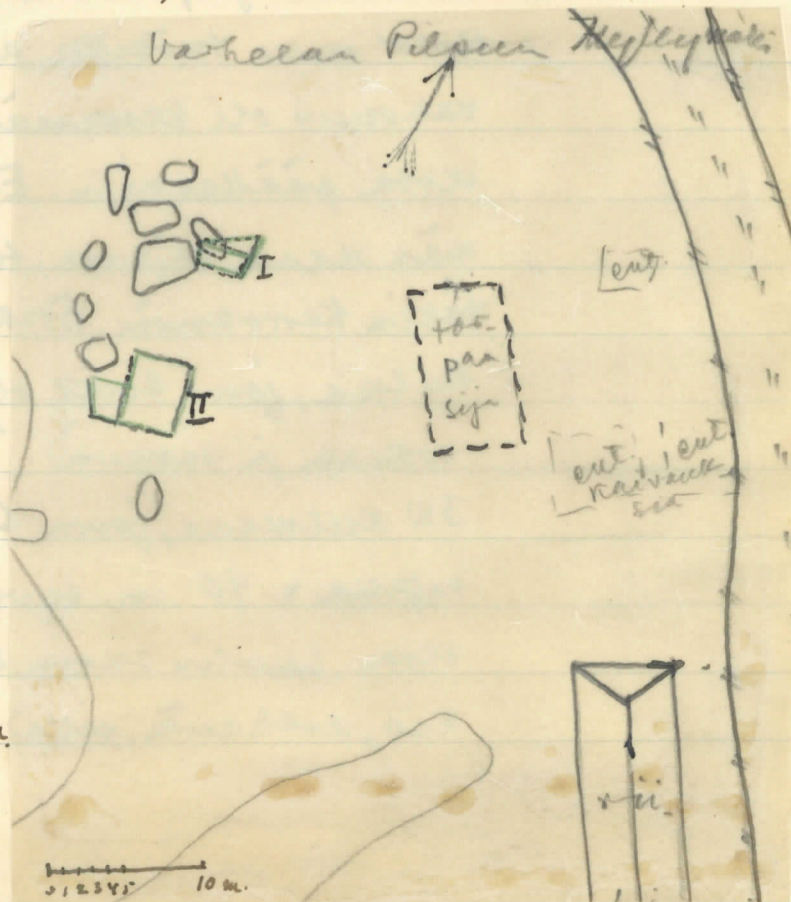 Vaihelan Pilpun Myllymäki
I
II
torpan
sija
ent.
ent.
kaivauk
sia
ent.
rii-
0 1 2 3 4 5 10 m.